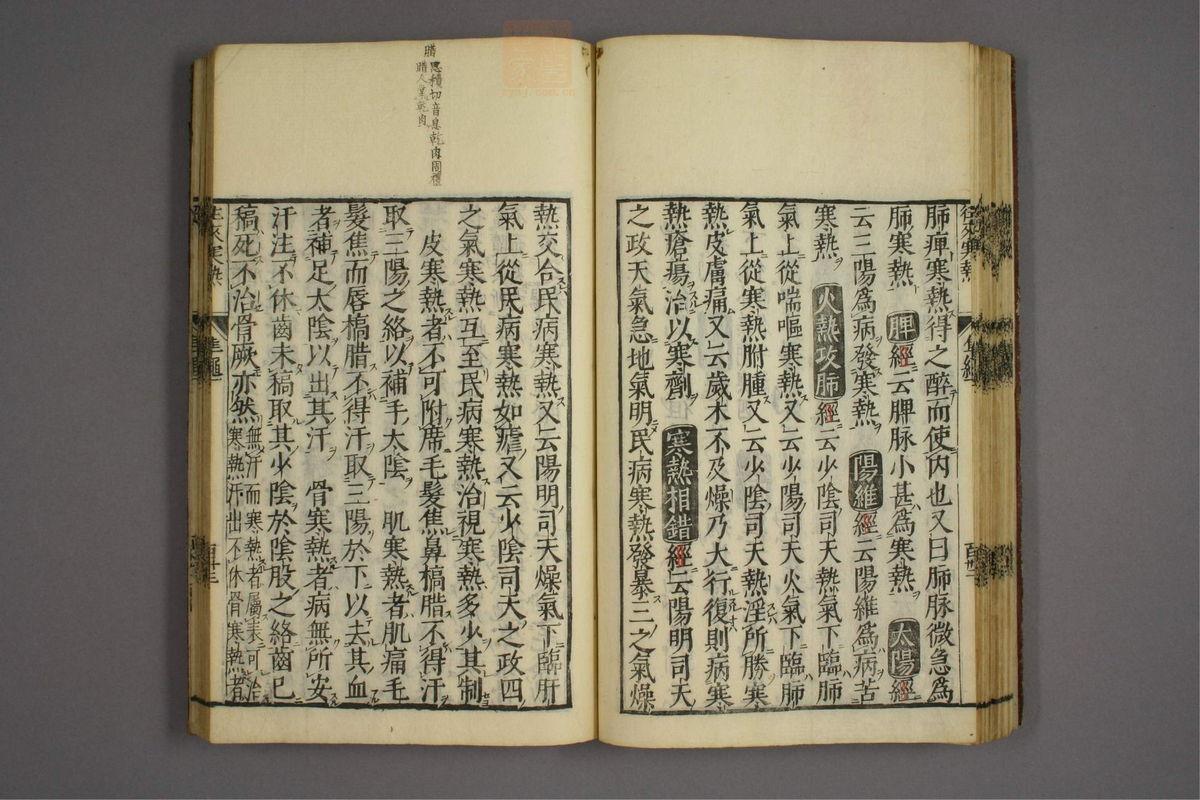 肺痺寒熱得之醉而使内也又曰肺脉微急為
肺寒熱 脾經云脾脉小甚為寒熱 太陽經
云三陽為病發寒熱 陽維經云陽維為病苦
寒熱 火熱攻肺經云少陰司天熱氣下臨肺
氣上從喘嘔寒熱又云少陽司天火氣下臨肺
氣上從寒熱胕腫又云少陰司天熱淫所勝寒
熱皮膚痛又云歲木不及燥乃大行復則病寒
熱瘡瘍治以寒劑 寒熱相錯經云陽明司天
之政天氣急地氣明民病寒熱發暴三之氣燥
熱交合民病寒熱又云陽明司天燥氣下臨肝
氣上從民病寒熱如瘧又云少陰司天之政四
之氣寒熱互至民病寒熱治視寒熱多少其制
皮寒熱者不可附席毛髮焦鼻槁腊不得汗
取三陽之絡以補手太陰 肌寒熱者肌痛毛
髮焦而唇槁腊不得汗取三陽於下以去其血
者補足太陰以出其汗 骨寒熱者病無所安
汗注不休齒未槁取其少陰於陰股之絡齒已
稿死不治骨厥亦然 無汗而寒熱者屬表可治
寒熱汗出不休骨寒熱者
腊 思積切音息乾肉周禮
腊人掌乾肉